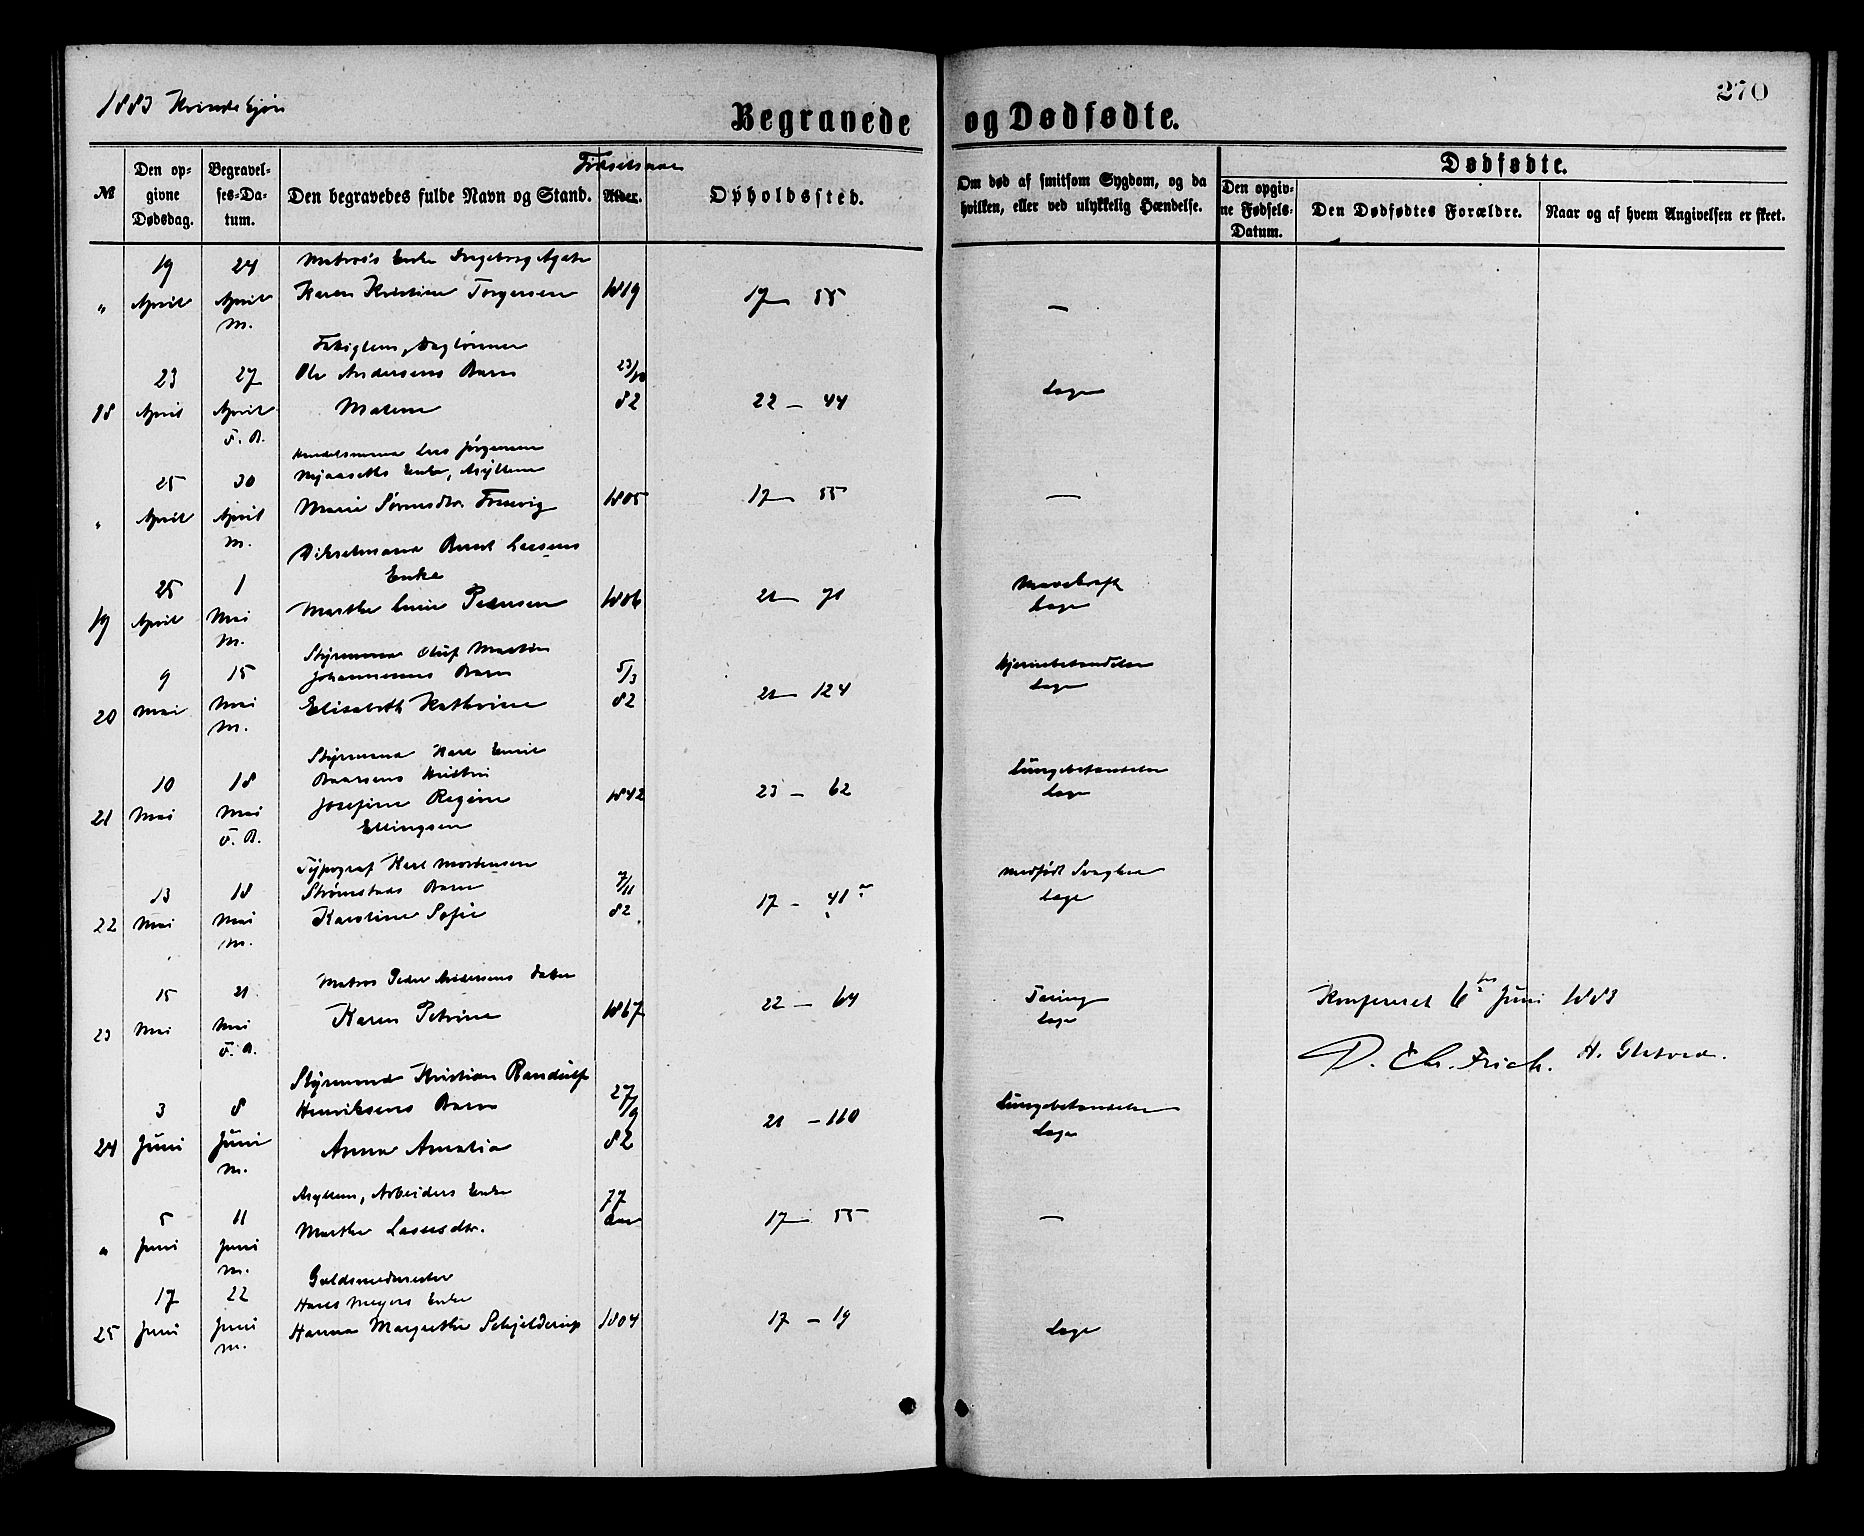 1883 Kvindekjøn
270
Begravede og Dødfødte.
№
Den opgivne Dødsdag.
Begravelses-Datum.
Den begravedes fulde Navn og Stand.
Fødselsaar
Alder.
Opholdssted.
Om død af smitsom Sygdom, og da hvilken, eller ved ulykkelig Hændelse.
Dødfødte.
Den opgivne Fødsels-Datum.
Den Dødfødtes Forældre.
Naar og af hvem Angivelsen er skeet.
Matros's Enke Ingeborg Agate
19 24
" April April Karen Kristine Torgersen 1819 17 — 55 —
M.
Fattiglem, Daglønner
23 27 Ole Andersens Barn 23/10
18 April April Matene 82 22 — 44 Læge
F. B.
Handelsmand Lars Jørgensen
Mjaaseths Enke, Asyllem
25 30
" April April Marie Sørensdtr 1805 17 — 55 —
M.
Bernt Larsens
Enke
25 1 Mavekræft
19 April Mai Marthe Pedersen 1806 21 — 71 Læge
M.
Styrmand Oluf Martin
9 15 Johannesens Barn 5/3 Hjernebetændelse
20 Mai Mai Elisabeth Kathrine 82 21 — 124 Læge
M.
Styrmand Karl Emil
10 18 Baarsens Hustru Lungebetændelse
21 Mai Mai Josefine Regine 1842 23 — 62 Læge
F. B. Ellingsen
Typograf Karl Mortensen
13 18 Strømstads Barn 7/11 medfødt Svaghed
22 Mai Mai Karoline Sofie 82 17 — 41 a Læge
M.
Matros Peder Andersens Datter
15 21
23 Mai Mai Karen Petrine 1867 22 — 64 Tæring
F. B. Læge
Konfereret 6 Juni 1883
D. Chr. Frich. H.
Styrmand Kristian Randulf
3 8 Henriksens Barn 27/9 Lungebetændelse
24 Juni Juni Anna Amalia 82 21 — 160 Læge
M.
Asyllem, Arbeiders Enke 77
5 11 Aar
" Juni Juni Marthe Lassesdtr. 17 — 55 —
M.
Guldsmedmester
17 22 Hans Meyers Enke
25 Juni Juni Hanna Margrethe Schjelderup 1804 17 — 19 Læge
M.